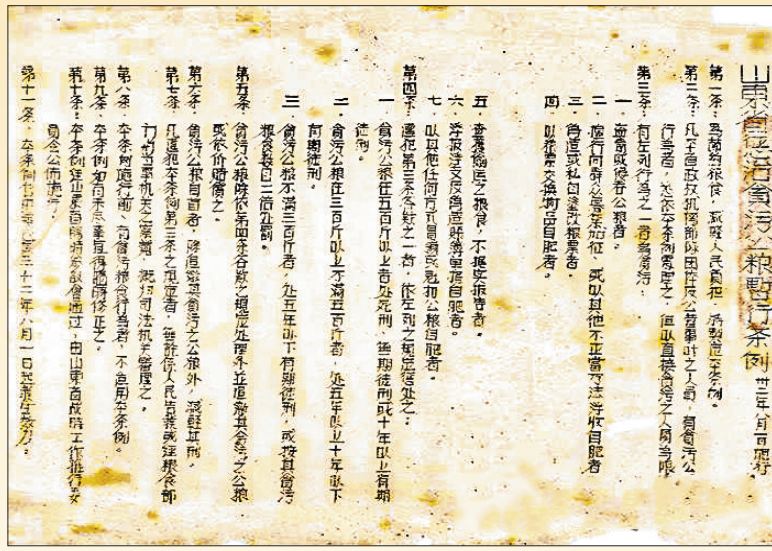 山东省惩治贪污公粮暂行条例 卅三年八月一日施行
第一条：为节约粮食，减轻人民负担，特制定本条例。
第二条：凡本省政权机关部队团体及公营事业之人员，有贪污公
行为者，悉依本条例处理之，但以直接贪污之人员为限
第三条：有左列行为之一者为贪污：
一 盗卖或侵吞公粮者。
二 擅行向群众借粮征，或以其他不正当方法浮收自肥者
三 伪造或私自涂改粮票者。
四 以粮票交换物品自肥者。
五 查获偷运之粮食，不据实报告者。
六 浮报浮支及伪造账簿单据自肥者。
七 以其他任何方式冒领或克扣公粮自肥者。
第四条：违犯第三条各款之一者，依左列之规定惩处之：
一 贪污公粮在五百斤以上者处死刑、无期徒刑或十年以上有期
徒刑。
二 贪污公粮在三百斤以上不满五百斤者，处五年以上十年以下
有期徒刑。
三 贪污公粮不满三百斤者，处五年以下有期徒刑，或按其贪污
粮食数目二倍处罚。
第五条：贪污公粮除依第四条各款之规定处理外并追缴其贪污之公粮
或依价赔偿之。
第六条：贪污公粮自首者，除追缴其贪污之公粮外，减轻其刑。
第七条：凡违犯本条例第三条之规定者，无论系人民告发或经粮食部
门或当事机关之察觉，概归司法机关审理之。
第八条：本条例施行前之贪污粮食行为者，不适用本条例。
第九条：本条例如有未尽事宜得随时修正之。
第十条：本条例经山东省临时参议会通过，由山东省战时工作推行委
员会公布施行。
第十一条：本条例自中华民国三十二年八月一日起发生效力。